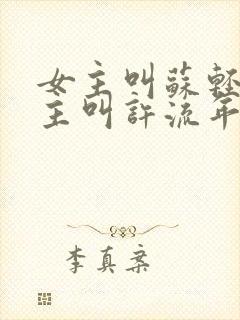 女主叫蘇輕
主叫許流年
李真案